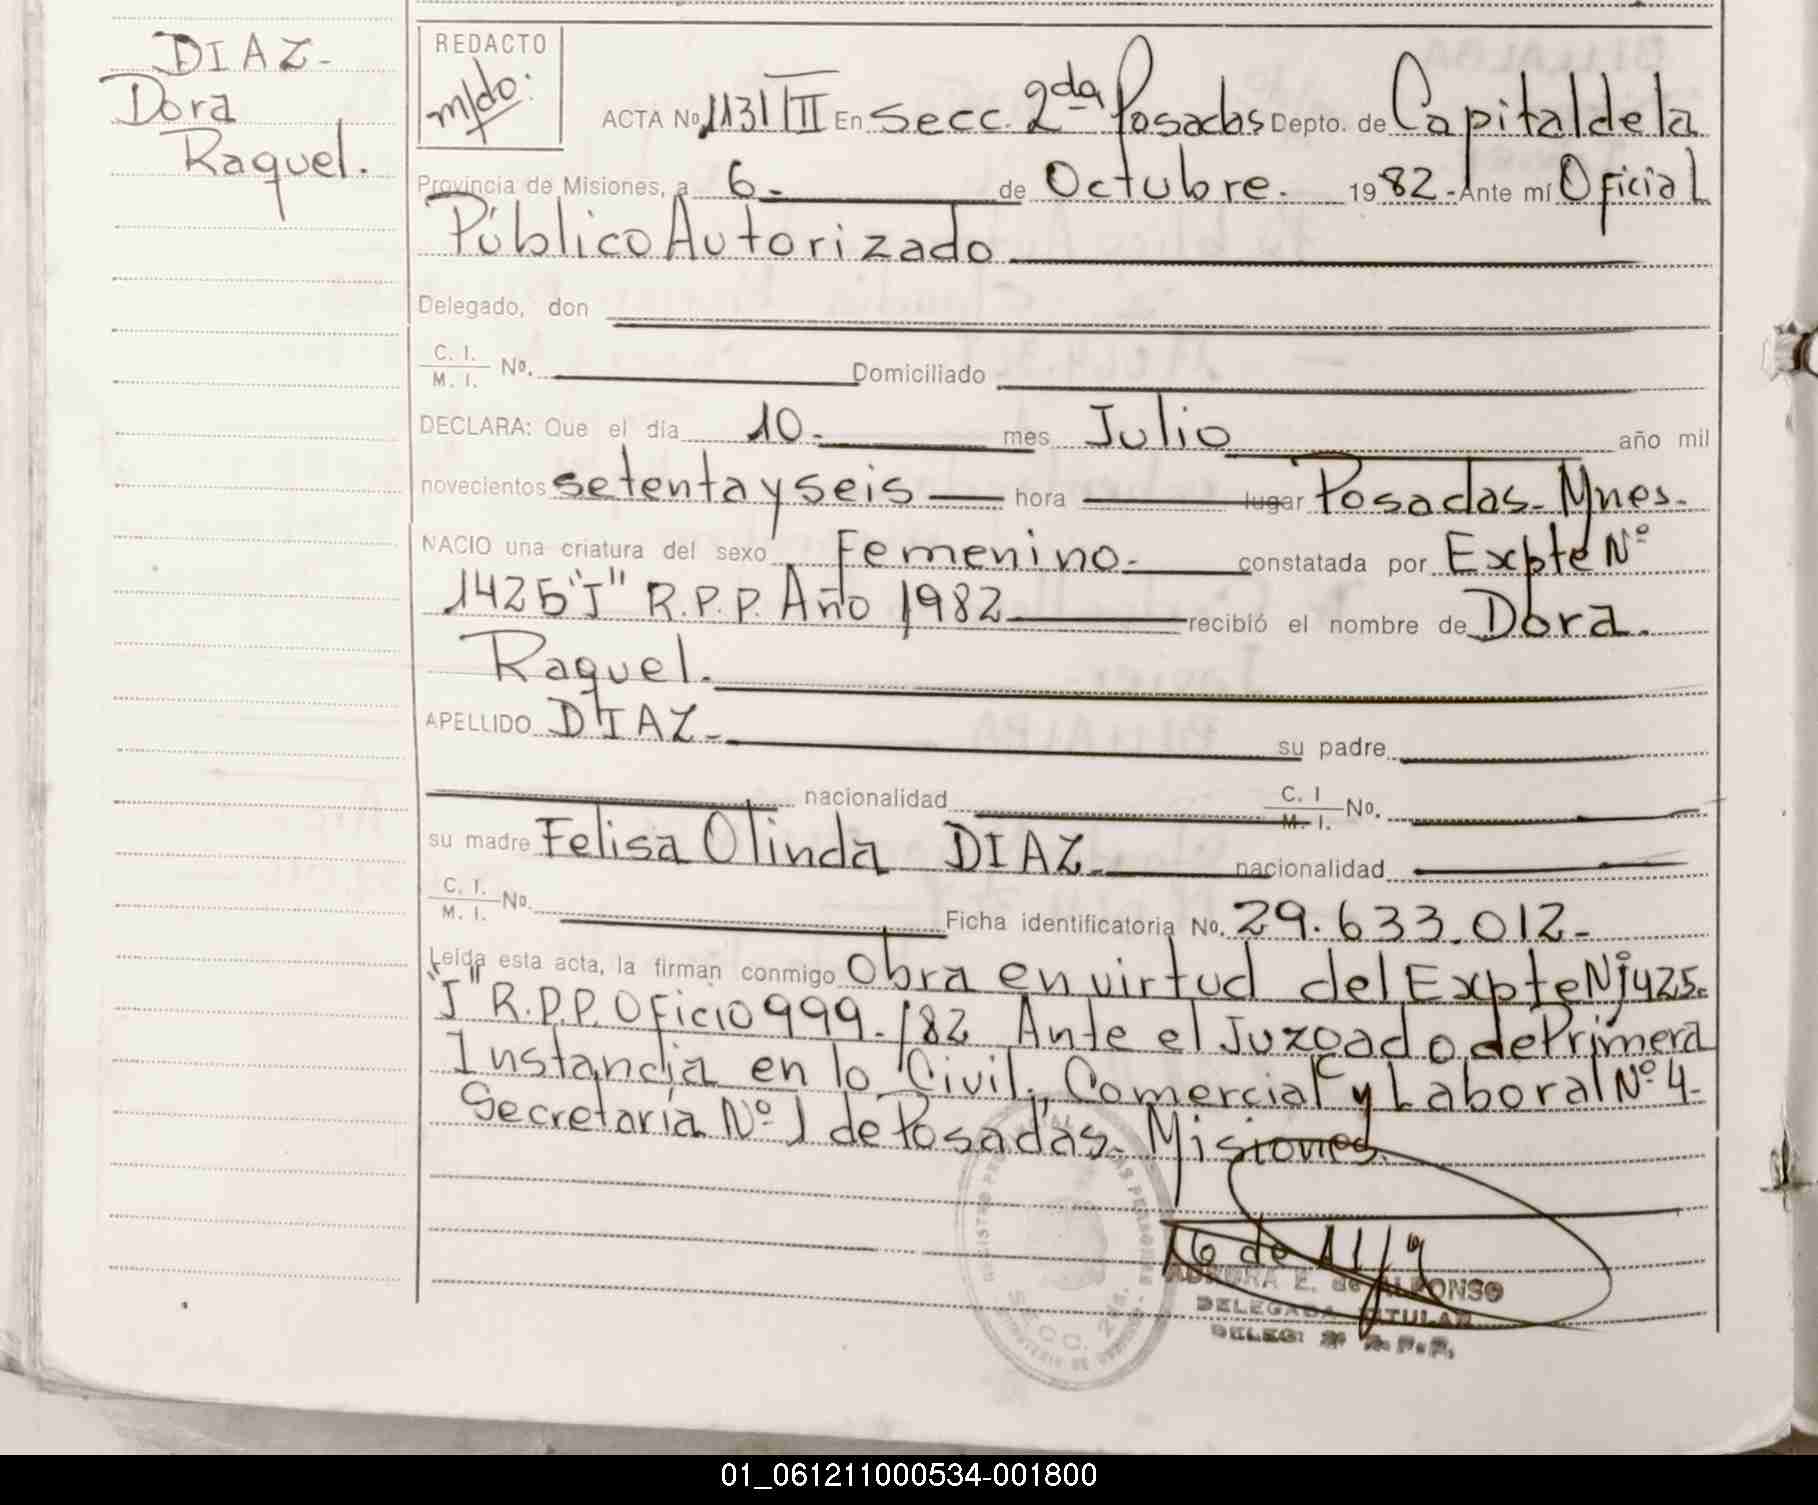 DIAZ-
Dora
Raquel.
REDACTO
m/do:
ACTA No 1131 III En secc. 2da Posadas Depto. de Capital de la
Provincia de Misiones, a 6- de Octubre. 1982- Ante mí Oficial
Público Autorizado
Delegado, don
C. I. / M. I. No. Domiciliado
DECLARA: Que el día 10- mes Julio año mil
novecientos setenta y seis hora lugar Posadas- Mnes.
NACIO una criatura del sexo Femenino- constatada por Expte Nº
1425 "J" R.P.P. Año 1982 recibió el nombre de Dora
Raquel.
APELLIDO DIAZ- su padre
nacionalidad C. I / M. I. No.
su madre Felisa Olinda DIAZ- nacionalidad
C. I. / M. I. No. Ficha identificatoria No. 29.633.012-
Leída esta acta, la firman conmigo Obra en virtud del Expte Nº 1425-
"J" R.P.P. Oficio 999-/82 Ante el Juzgado de Primera
Instancia en lo Civil, Comercial y Laboral Nº 4-
Secretaria Nº 1 de Posadas- Misiones.
AURORA E. de ALFONSO
DELEGADA TITULAR
DELEG: 2ª R.P.P.
SECC. 2da.
01_061211000534-001800